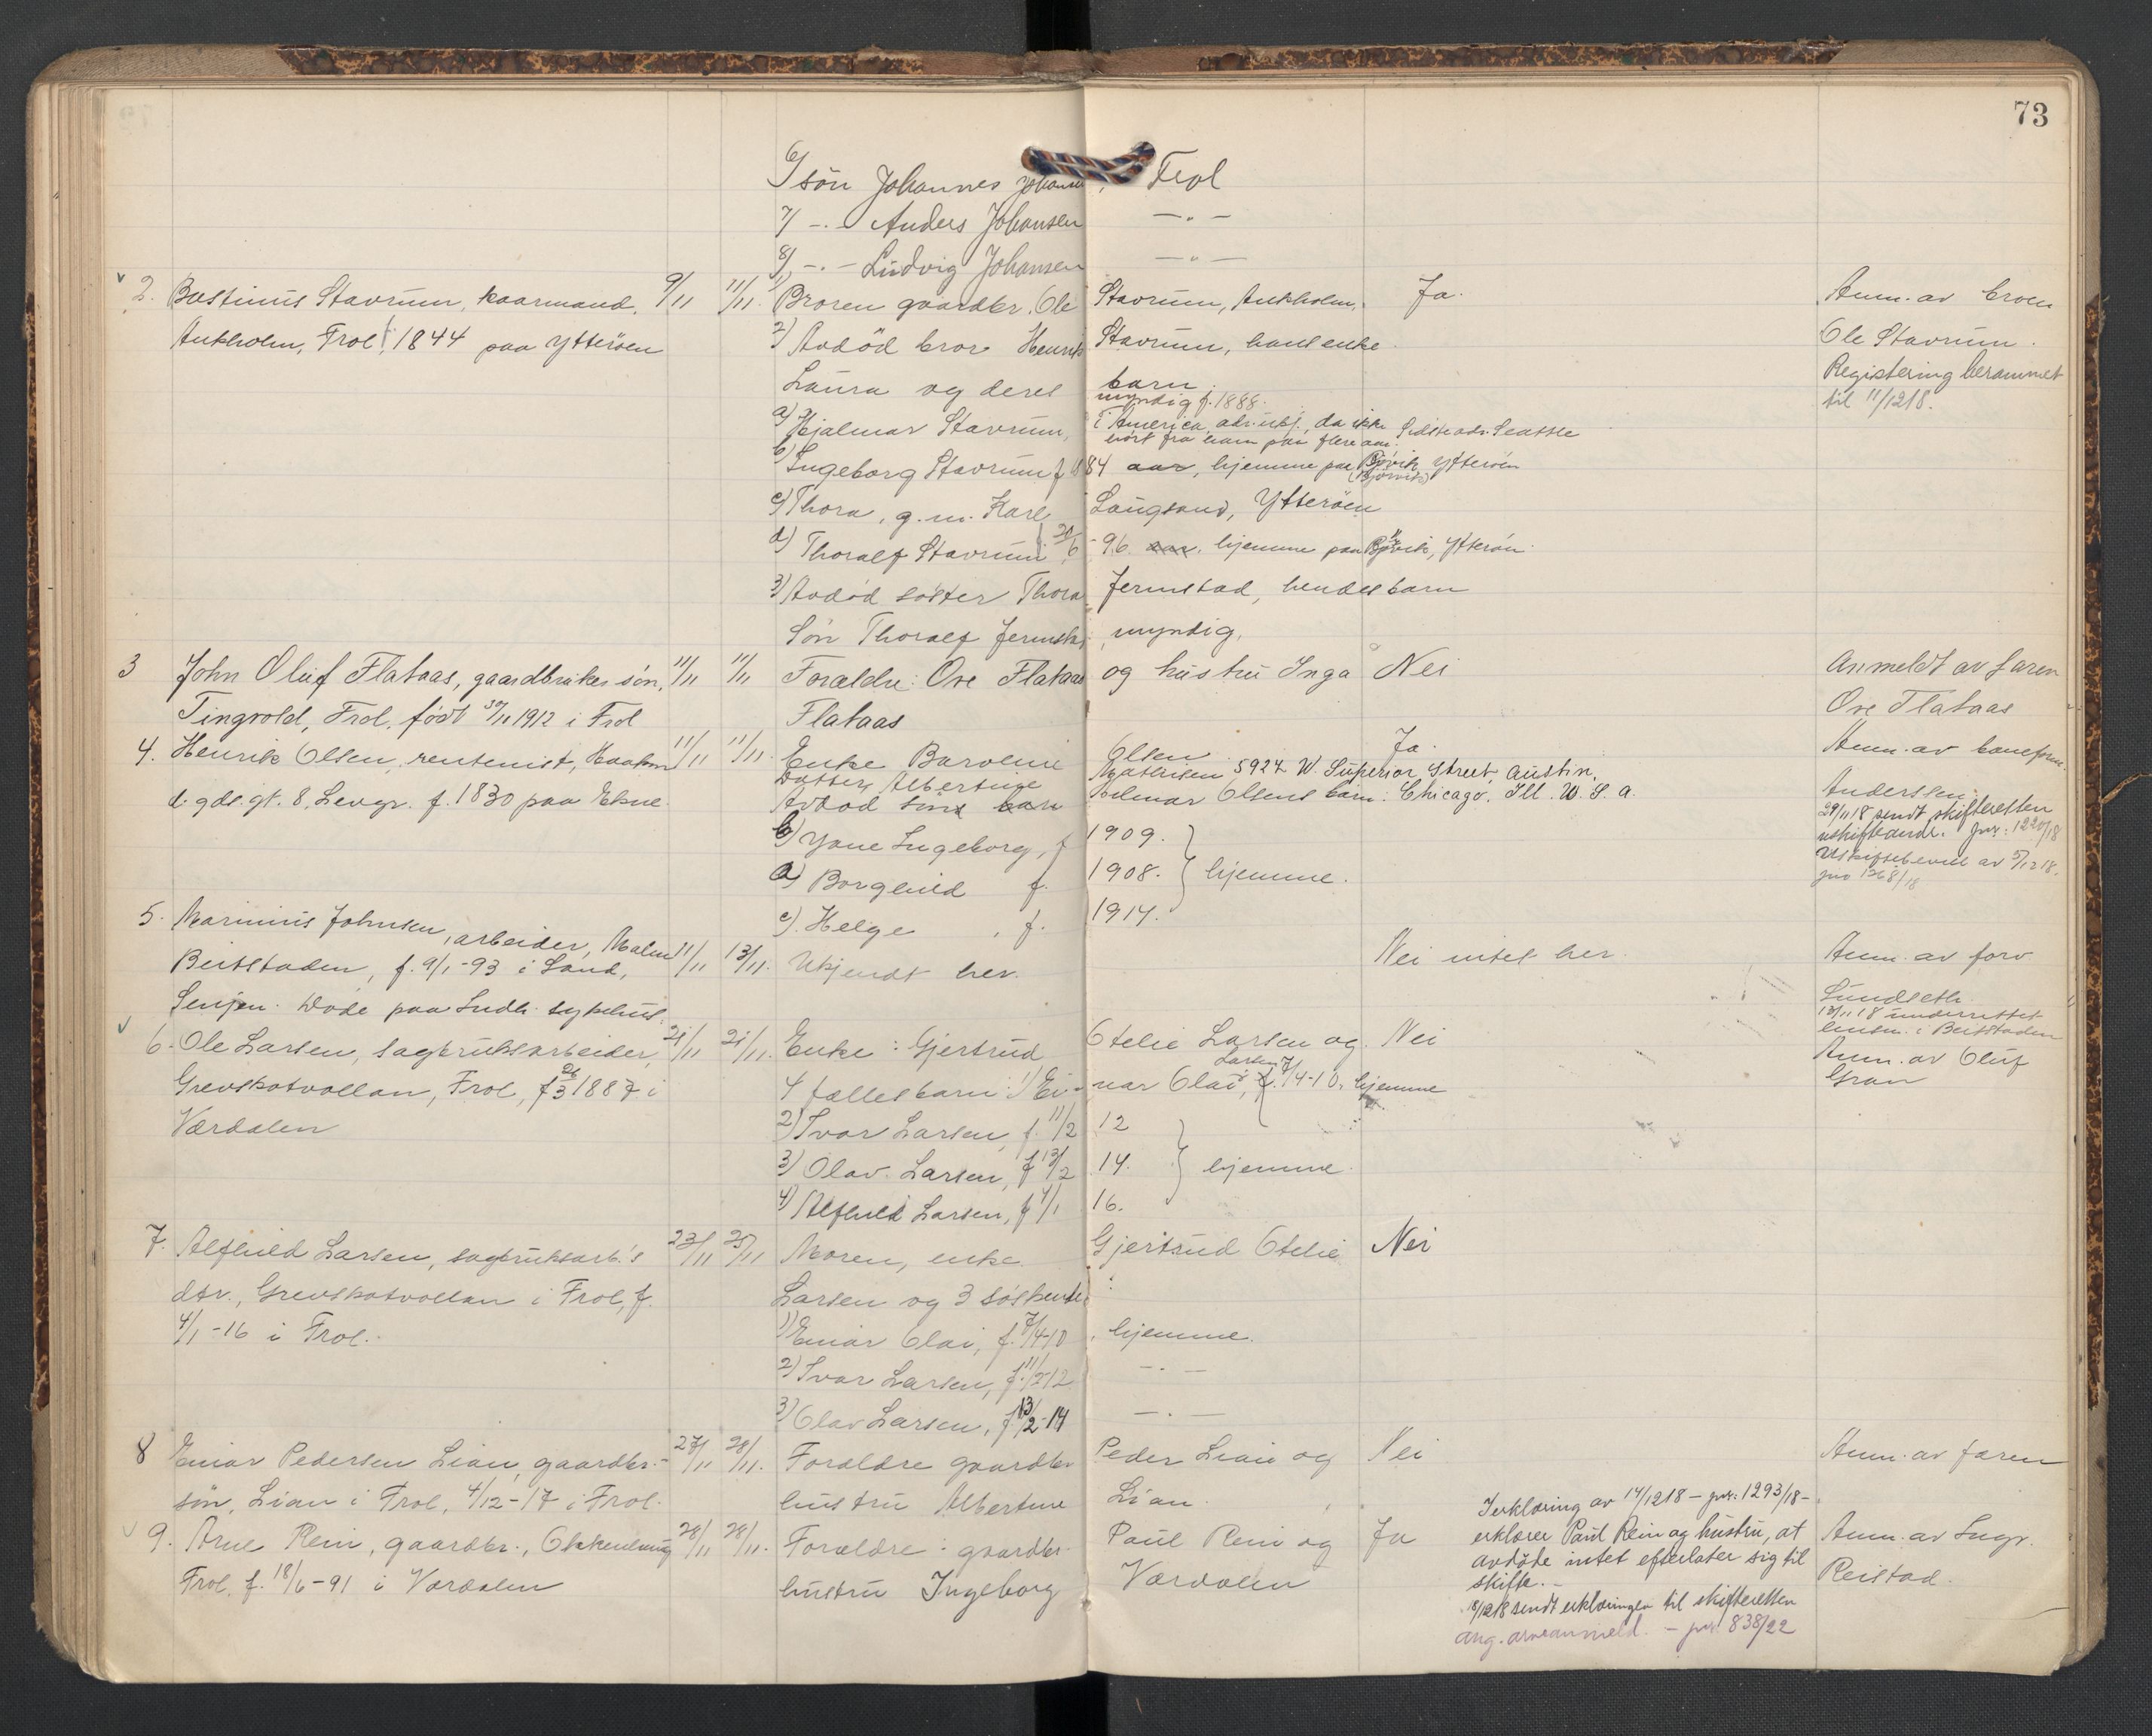 73
6/ søn Johannes Johansen, Frol
7/ -"- Anders Johansen -"-
8/ -"- Ludvig Johansen -"-
2. Bastinus Stavrum, kaarmand, 9/11 11/11. 1) Broren gaardbr. Ole Stavrum, Ankholm. Ja. Anm. av broren
Ankholm, Frol f. 1844 paa Ytterøen 2) Avdød bror Henrik Stavrum, hans enke Ole Stavrum.
Laura og deres barn. Registering berammet
myndig f. 1888. til 11/12 18.
a) Hjalmar Stavrum, i America, adr. ubk., da ikke Sidste adr. Seattle
hørt fra ham paa flere aar.
b) Ingeborg Stavrum f. 1884 aar, hjemme paa Bjørvik, Ytterøen
(Bjørvik)
c) Thora, g.m. Karl Laugsand, Ytterøen
d) Thoralf Stavrum f. 20/6 -96 aar, hjemme paa Bjørvik, Ytterøn.
3) Avdød søster Thora Jermstad, hendes barn
Søn Thoralf Jermstad, myndig.
3 John Oluf Flataas, gaardbruker søn, 11/11 11/11 Forældre: Ove Flataas og hustru Inga Nei Anmeldt av faren
Tingvold, Frol, født 30/11 1912 i Frol Flataas Ove Flataas
4. Henrik Olsen, rentenist, Haakon 11/11 11/11. Enke Baroline Olsen Ja. Anm. av baneform.
Datter, Albertine Mathisen 5924 W. Superior Street, Austin, Anderssen.
d. gdes. gt. 8, Levgr. f. 1830 paa Ekne Avdød søns barn Hilmar Olsens barn: Chicago. Ill. W. S. A.
29/11 18 sendt skifteretten
uskifteandr. jnr: 1220/18
b) Yane Ingeborg, f. 1909.
Uskiftebevill av 5/12 18.
jno 1268/18
a) Borghild f. 1908. } hjemme.
c). Helge, f. 1914.
5. Marinius Johnsen, arbeider, Malm
Beitstaden, f. 9/1-93 i Sand, 11/11 13/11. Ukjendt her. Nei intet her. Anm. av forv.
Senjen. Døde paa Indh. sykehus. Lundseth.
13/11 18 underrettet
lensm. i Beitstaden
6. Ole Larsen, sagbruksarbeider, 21/11 21/11. Enke: Gjertrud Otelie Larsen og Nei Anm. av Oluf
Grevskotvollan, Frol, f. 26/3 1887 i 4 fælles barn: 1) Einar Olai Larsen, f. 7/4-10, hjemme Gran
Værdalen 2) Ivar Larsen, f. 11/2 12
3) Olav Larsen, f. 13/2 14. } hjemme.
4) Alfhild Larsen, f. 4/1 16.
7. Alfhild Larsen, sagbruksarb.'s 23/11 25/11 Moren, enke Gjertrud Otelie Nei
dtr., Grevskotvollan i Frol, f. Larsen og 3 søskende:
4/1-16 i Frol. 1) Einar Olai, f. 7/4-10, hjemme.
2) Ivar Larsen, f. 11/2-12 -"-
3) Olav Larsen, f. 13/2-14 -"-
8 Einar Pedersen Lian, gaardbr.- 27/11 28/11. Forældre gaardbr Peder Lian og Nei Anm. av faren
søn, Lian i Frol, 4/12-17 i Frol. hustru Albertine Lian.
9. Arne Rein, gaardbr., 28/11 28/11. Forældre: gaardbr. Paul Rein og Ja Anm. av Ingr.
Frol, f. 18/6-91 i Værdalen hustru Ingeborg Værdalen Reistad.
I erklæring av 14/12 18 - jnr: 1293/18 -
erklærer Paul Rein og hustru, at
avdøde intet efterlater sig til
skifte. -
18/12 18 sendt erklæringen til skifteretten
ang. arveanmeld. - jnr 838/22